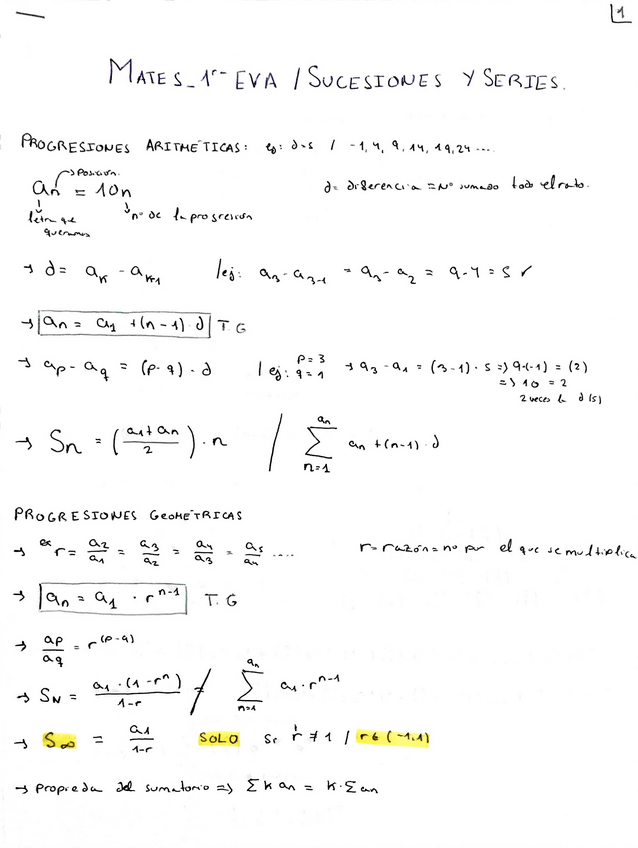 1
MATES_1ʳ EVA / SUCESIONES Y SERIES.
PROGRESIONES ARITMÉTICAS: eg: d=5 / -1, 4, 9, 14, 19, 24 ....
→ Posición.
an = 10n
d = diferencia = Nº sumado todo el rato.
letra que queramos
nº de la progresión
→ d = aK - aK-1 / ej: a3 - a3-1 = a3 - a2 = 9-4 = 5 ✓
→ an = a1 + (n-1) · d T.G
→ ap - aq = (p-q) · d / ej: p=3 q=1 → a3 - a1 = (3-1) · 5 => 9-(-1) = (2)
=> 10 = 2
2 veces la d (5)
→ Sn = ((a1 + an)/2) · n / an ∑ n=1 an + (n-1) · d
PROGRESIONES GEOMÉTRICAS
→ ex r = a2/a1 = a3/a2 = a4/a3 = a5/a4 .... r = razón = no por el que se multiplica
→ an = a1 · r^n-1 T.G
→ ap/aq = r^(p-q)
→ SN = a1 · (1-r^n)/1-r / an ∑ n=1 a1 · r^n-1
→ S∞ = a1/1-r SOLO Si r ≠ 1 / r∈(-1,1)
→ Propieda del sumatorio => ∑K an = K·∑an